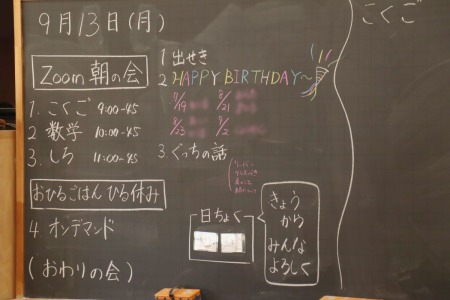 9月13日(月)
Zoom 朝の会
1. こくご 9:00-45
2 数学 10:00-45
3. しろ 11:00-45
おひるごはん ひる休み
4 オンデマンド
(おわりの会)
1 出せき
2 HAPPY BIRTHDAY〜
7/19 8/21
8/23 9/2
3. ぐっちの話
日ちょく
きょう
から
みんな
よろしく
こくご